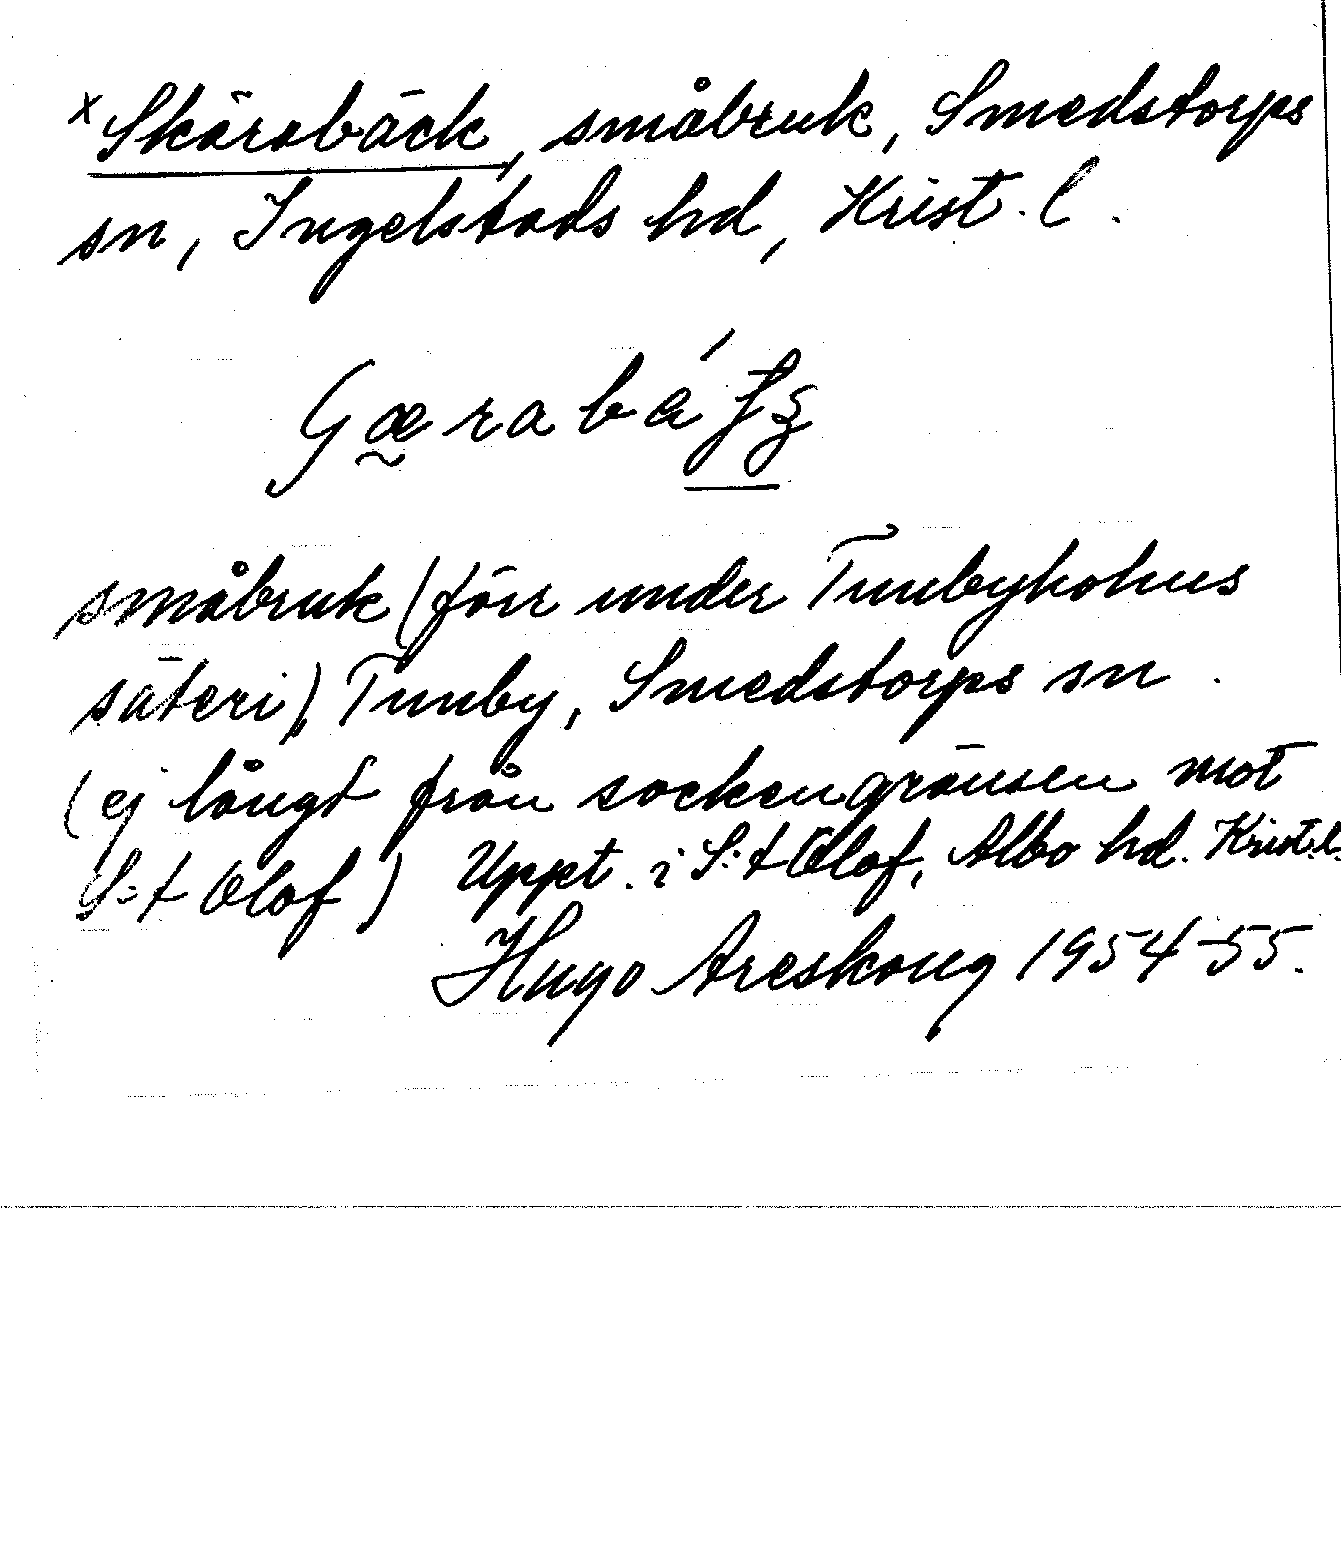 x Skärabäck, småbruk, Smedstorps
sn, Ingelstads hd, Krist. l.
småbruk (förr under Tunbyholms
säteri), Tunby, Smedstorps sn.
(ej långt från sockengränsen mot
S:t Olof) Uppt. i S:t Olof, Albo hd. Krist. l.
Hugo Areskoug 1954-55.